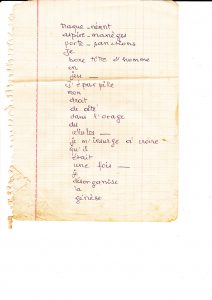 traque-néant
aspire-manèges
porte-sanctions
je
hore tête d'homme
en
feu —
j'éparpille
mon
droit
de cité
dans l'orage
du
allules —
je m'insurge à croire
qu'il
était
une fois —
je
désorganise
la
genèse